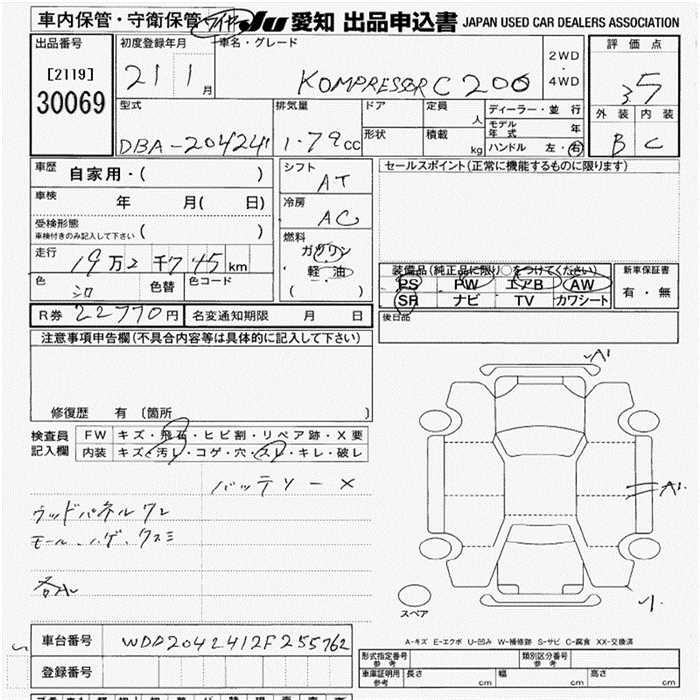 車内保管・守衛保管 ワイヤー JU 愛知 出品申込書 JAPAN USED CAR DEALERS ASSOCIATION
出品番号 初度登録年月 車名・グレード 2WD・4WD 評価点
[2119]
30069 21 1月 KOMPRESSOR C 200 3.5
型式 排気量 ドア 定員 人 ディーラー・並行 外装 内装
モデル年式 年
DBA-204241 1.79cc 形状 積載 kg ハンドル 左・右 B C
車歴 自家用・( ) シフト AT セールスポイント(正常に機能するものに限ります)
車検 年 月( 日) 冷房 AC
受検形態 ( )
車検付きのみ記入して下さい
燃料 ガソリン
走行 19万2千745km 軽油 装備品(純正品に限り○をつけてください) 新車保証書
色 シロ 色替 色コード ( ) PS PW エアB AW 有・無
SR ナビ TV カワシート
R券 22770円 名変通知期限 月 日 後日品
注意事項申告欄(不具合内容等は具体的に記入して下さい)
修復歴 有 〔箇所 〕
検査員記入欄 FW キズ・飛石・ヒビ割・リペア跡・X要
内装 キズ・汚レ・コゲ・穴・スレ・キレ・破レ
バッテリーX
ウッドパネルワレ
モール、ハゲ、クスミ
A1
A1
スペア
A-キズ E-エクボ U-凹み W-補修跡 S-サビ C-腐食 XX-交換済
車台番号 WDD2042412F255762
登録番号
形式指定番号 参考 類別区分番号 参考
車庫証明用 参考 長さ cm 幅 cm 高さ cm